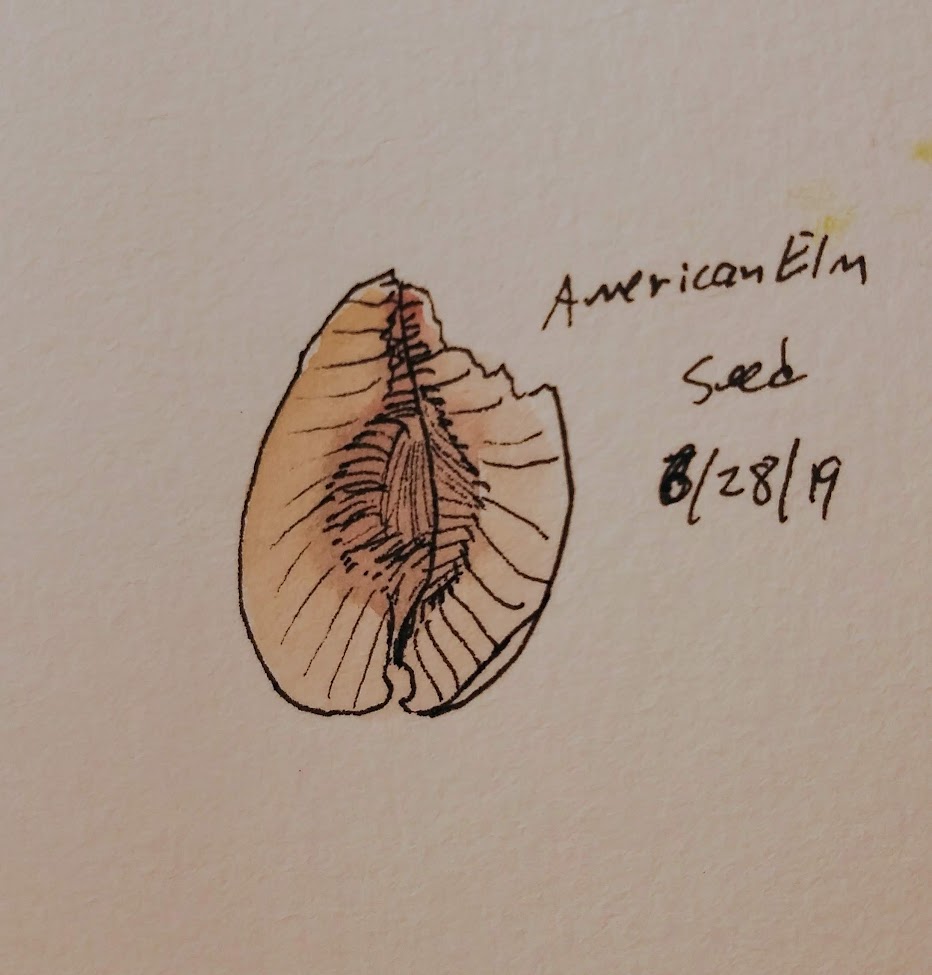 American Elm
Seed
6/28/19